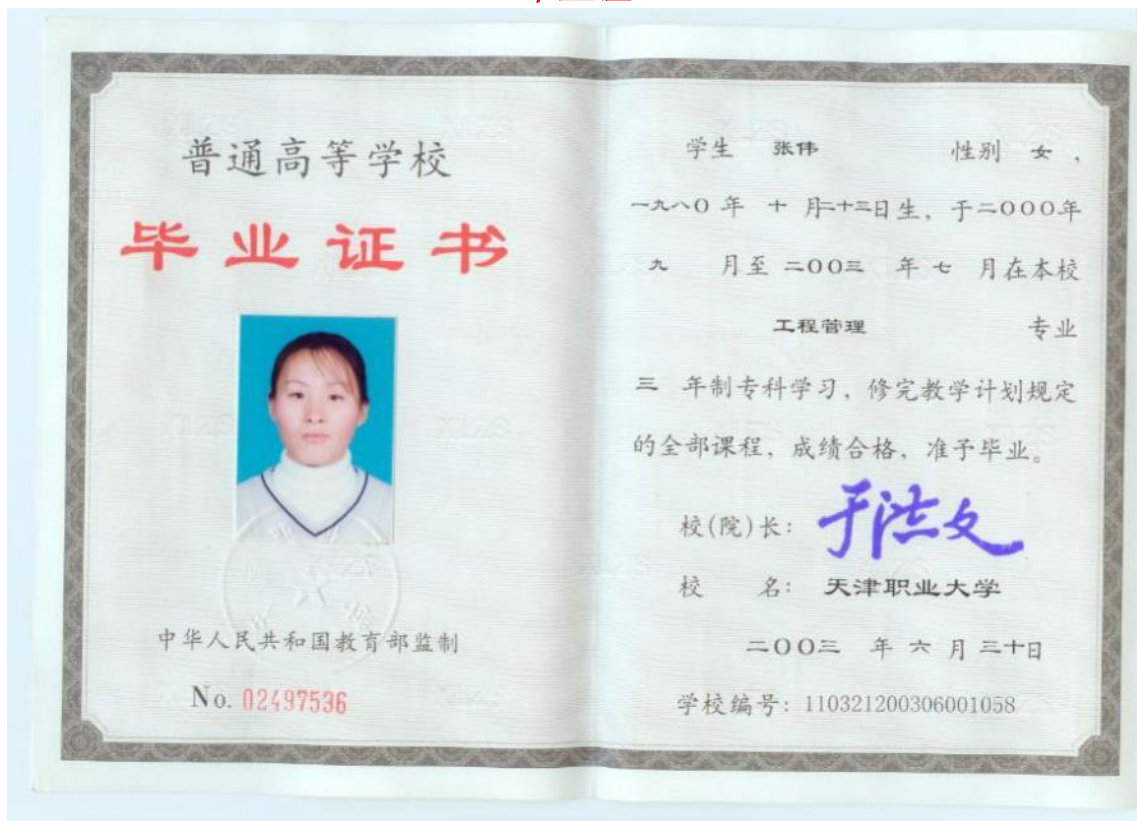 普通高等学校
毕业证书
中华人民共和国教育部监制
No. 02497536
学生 张伟 性别 女,
一九八〇年 十 月二十三日生, 于二〇〇〇年
九 月至 二〇〇三 年 七 月在本校
工程管理 专业
三 年制专科学习, 修完教学计划规定
的全部课程, 成绩合格, 准予毕业。
校(院)长: 于洪文
校 名: 天津职业大学
二〇〇三 年 六 月 三十日
学校编号: 110321200306001058